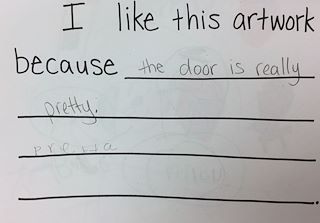 I like this artwork
because the door is really
pretty.